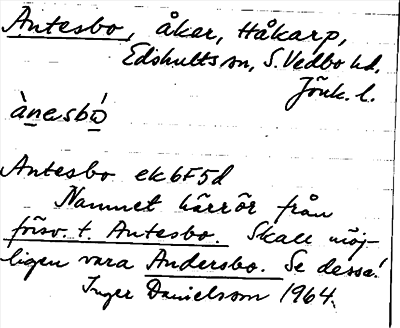 Antesbo, åker, Håkarp,
Edshults sn, S. Vedbo hd,
Jönk. l.
ànesbó
Antesbo ek 6F5d
Namnet härrör från
försv. t. Antesbo. Skall möj-
ligen vara Andersbo. Se dessa!
Inger Danielsson 1964.